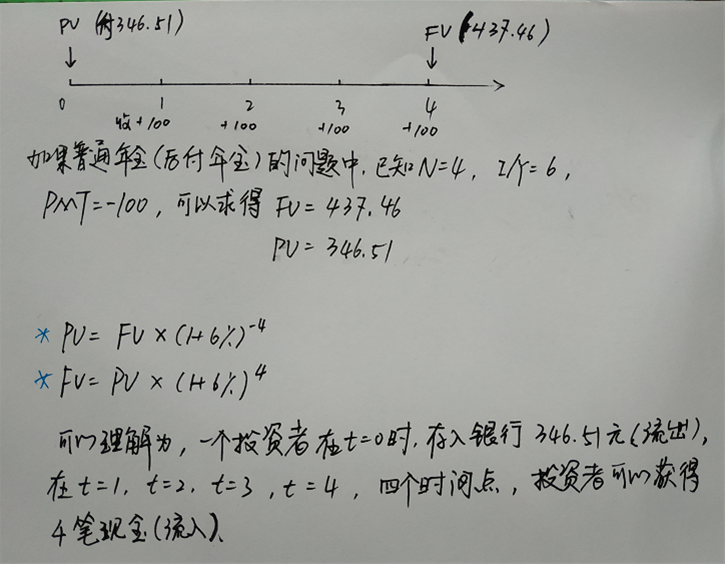 PV (付346.51)
FV (437.46)
0 1 2 3 4
收+100 +100 +100 +100
如果普通年金(后付年金)的问题中,已知N=4, I/Y=6,
PMT=-100, 可以求得 FV=437.46
PV=346.51
* PV= FV×(1+6%)⁻⁴
* FV= PV×(1+6%)⁴
可以理解为, 一个投资者在t=0时, 存入银行346.51元(流出),
在t=1, t=2, t=3, t=4, 四个时间点, 投资者可以获得
4笔现金(流入)、